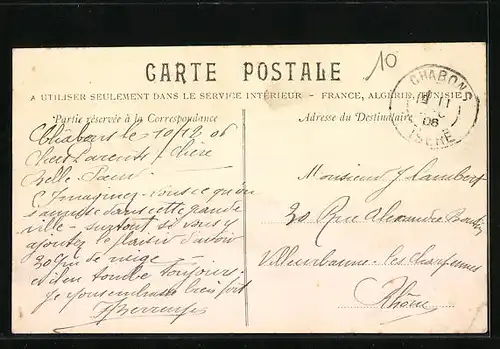 10
CARTE POSTALE
A UTILISER SEULEMENT DANS LE SERVICE INTÉRIEUR - FRANCE, ALGÉRIE, TUNISIE
Partie réservée à la Correspondance
Adresse du Destinataire
CHABONS
11
06
ISÈRE
Châbons le 10/12 06
Chers Parents & Chère
Belle Sœur
Imaginez-vous ce qu'on
s'amuse dans cette grande
ville - surtout si vous y
ajoutez le plaisir d'avoir
20 cm de neige -
et il en tombe toujours.
Je vous embrasse bien fort
Monsieur J. Lambert
20 Rue Alexandre
Villeurbanne - les Charpennes
Rhône